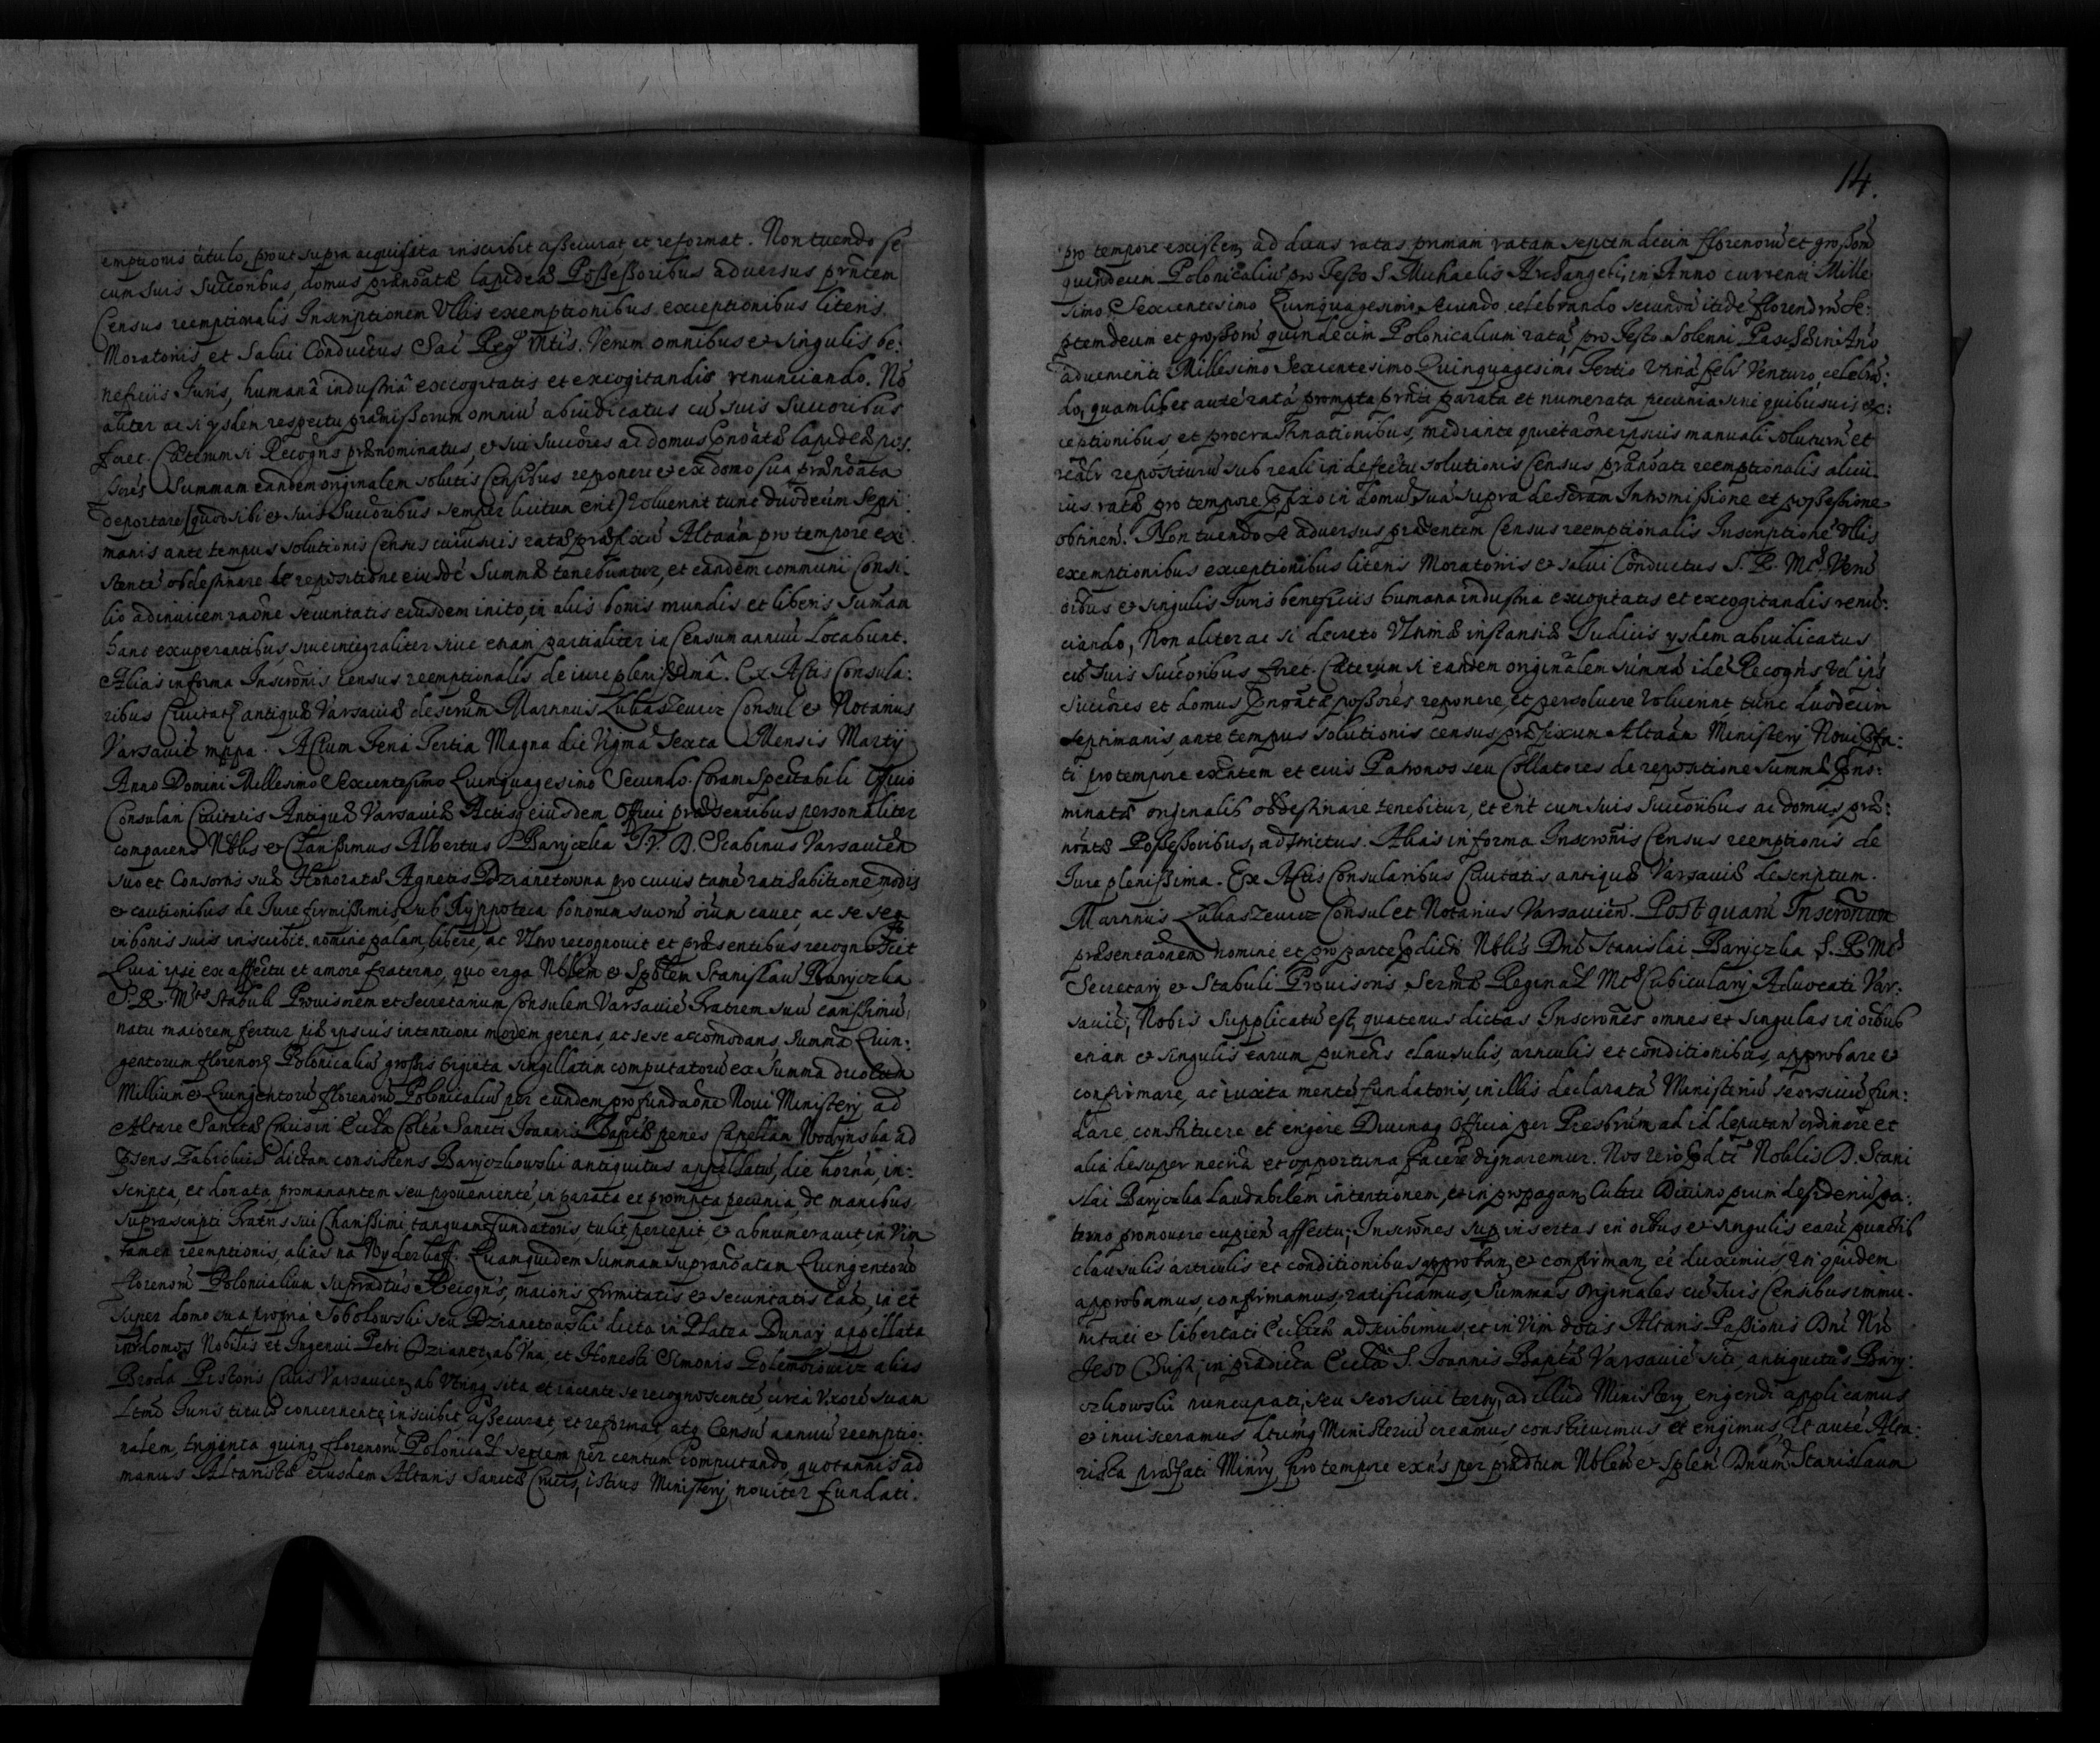 emptionis titulo, prout supra acquisita inscribit assecurat et reformat. Non tuendo se
cum suis Succoribus, domus prænoatæ lapideæ Possessoribus adversus prntem
Census reemptionalis Inscriptionem Ullis exemptionibus exceptionibus literis
Moratoriis et Salui Conductus Sac Reg Mtis. Verum omnibus et singulis be:
neficiis Juris, humanâ industriâ excogitatis et excogitandis renunciando. No
aliter ac si ysdem respectu præmissorum omniu abiudicatus cu suis Succoribus
foret. Cæterum si Recogns prænominatus, et sui Succores ac domus pnoatæ lapideæ pos.
sores Summam eandem originalem solutis Censibus reponere et ex domo sua prænoata
deportare (quod sibi et suis Succoribus semper licitum erit) Voluerint tunc duodecim Septi
manis ante tempus solutionis Census cuiusuis ratæ præfixu Altaria pro tempore exi
stente obdestinare de repositione eiusde Summæ tenebuntur, et eandem communi Consi
lio adinuicem raône securitatis eiusdem inito, in aliis bonis mundis et liberis Sumam
hanc exuperantibus, siue integraliter siue etiam partialiter in Censum annuu Locabunt.
Alias in forma Inscronis census reemptionalis de iure plenissimâ. Ex Actis Consula:
ribus Ciuitatis antiquæ Varsaviæ descrum Martinus Lukaszewicz Consul et Notarius
Varsavien mppa. Actum Feria Tertia Magna die Vigma Sexta Mensis Martij
Anno Domini Millesimo Sexcentesimo Quinquagesimo Secundo. Coram Spectabili Officio
Consulari Ciuitatis Antiquæ Varsaviæ Actisq eiusdem Officii præsentibus personaliter
comparens Nblis et Clarissimus Albertus Baryczka I.V.D. Scabinus Varsavien
suo et Consortis suæ Honoratæ Agnetis Dzianetowna pro cuius tame ratihabitione modis
et cautionibus de Iure firmissimis sub Hyppoteca bonorum suoru oium cauet, ac se seq
in bonis suis inscribit nomine palam, libere, ac Vltro recognouit et præsentibus recognoscit
Quia ipse ex affectu et amore fraterno, quo erga Nblem et Spblem Stanislau Baryczka
S. R. Mtis Stabuli Prouisorem et Secretarium Consulem Varsavien Fratrem suu carissimu,
natu maiorem fertur piæ ipsius intentioni morem gerens, ac sese accomodans, Summa Quin:
gentorum florenoru Polonicaliu grossis triginta singillatim computatoru ex Summa duorum
Millium et Quingentoru florenoru Polonicaliu per eundem pro fundaone Noui Ministerij ad
Altare Sanctæ Crucis in Eccla Colta Sancti Joannis Baptæ penes Capellam Wodynska ad
dictam consistens Baryczkowski antiquitus appellatu, die horna, in:
scripta, et donata promanantem seu prouenientê, in parata et prompta pecunia, de manibus
suprascripti Fratris sui Charissimi tanquam Fundatoris, tulit percepit et abnumerauit, in Vim
tamen reemptionis, alias na Wyderkaff. Quamquidem Summam supranoatam Quingentoru
florenoru Polonicalium supradtus Recogns, maioris firmitatis et securitatis
super domo sua propria Sobolowski seu Dzianetowski dicta in Platea Dunay appellata
inter domos Nobilis et Ingenui Petri Dzianet, ab Vna, et Honesti Simonis Golembiowicz alias
Broda Pistoris Ciuis Varsavien ab Vtrinq sita, et iacente se recognoscentê, circa Vxorê suam
Ltmo Iuris titulo concernente inscribit assecurat, et reformat, atq Censu annuu reemptio:
nalem, triginta quinq florenoru Polonical septem per centum computando, quotannis ad
manus Altaristæ eiusdem Altaris Sanctæ Crucis, istius Ministerij nouiter fundati.
14.
pro tempore existen, ad duas ratas primam ratam septemdecim florenoru et grossoru
quindecim Polonicaliu pro Festo S. Michaelis Archangeli, in Anno currenti Mille
simo Sexcentesimo Quinquagesimo secundo celebrando secunda itide florenoru Se:
ptemdecim et grossoru quindecim Polonicalium rata pro Festo Solenni Paschæ in Ano
aduenienti Millesimo Sexcentesimo Quinquagesimo Tertio felr Venturo, celebra:
do, quamlibet aute rata prompta prnti parata et numerata pecunia sine quibusuis ex:
ceptionibus, et procrastinationibus, mediante quietaone ipsius manuali soluturu et
realr repositurum sub reali in defectu solutionis Census prænoati reemptionalis alicu
ius ratæ pro tempore pfixo in domu sua supra descram Intromissione et possessione
obtinen. Non tuendo se adversus præsentem Census reemptionalis Inscriptione Ullis
exemptionibus exceptionibus literis Moratoriis et salui Conductus S. R. Mtis Veru
oibus et singulis Juris beneficiis humana industria excogitatis et excogitandis renu:
ciando, Non aliter ac si decreto Vltimæ instantiæ Judicis ysdem abiudicatus
cu suis Succoribus foret. Cæterum si eandem originalem summa ide Recogns Vel ips
Succores et domus pnoatæ possores reponere, et persoluere Voluerint, tunc duodecim
septimanis, ante tempus solutionis census præfixum Altaria Ministerij Noui pfa:
ti pro tempore exntem et eius Patronos seu Collatores de repositione summæ pno:
minatæ originalis obdestinare tenebitur, et erit cum suis Succoribus ac domus præ:
noatæ Possessoribus, adstrictus. Alias in forma Inscronis Census reemptionis de
Jure plenissima. Ex Actis Consularibus Ciuitatis antiquæ Varsaviæ descriptum.
Martinus Lukaszewicz Consul et Notarius Varsavien. Postquam Inscronum
præsentaonem nomine et pro parte pdicti Nblis Dni Stanislai Baryczka S. R. Mtis
Secretarij et Stabuli Prouisoris, Sermæ Reginal Mtis Cubicularij Aduocati Var:
savien, Nobis Supplicatu est, quatenus dictas Inscrones omnes et Singulas in oibus
etian et singulis earum punctis clausulis, articulis et conditionibus, approbare et
confirmare, ac iuxta mente fundatoris, in illis declarata Ministeriu seorsiuu fun:
dare constituere et erigere Diuinaq Officia per Presbrum ad id deputan ordinare et
alia desuper necria et opportuna facere dignaremur. Nos vero pdti Noblis D. Stani
slai Baryczka laudabilem intentionem, et in propagan Cultu Diuino pium desideriu pa:
terno promouere cupien affectu, Inscrones sup insertas in oibus et singulis earu punctis
clausulis articulis et conditionibus approban et confirman eê duximus Vti quidem
approbamus, confirmamus, ratificamus, Summas originales cu suis Censibus immu
nitati et libertati Ecclicæ adscribimus, et in Vim dotis Altaris Passionis Dni Nri
Jesv Christi, in prædicta Eccla S. Joannis Baptæ Varsavien siti, antiquitus Bary:
czkowski nuncupati, seu seorsiui ad illud Ministerij erigendi applicamus
et inuisceramus Ministeriu creamus, constituimus, et erigimus, Vt aute Alta:
rista præfati Minrij pro tempore exns per prædtum Nblem et Splem Dnum Stanislaum